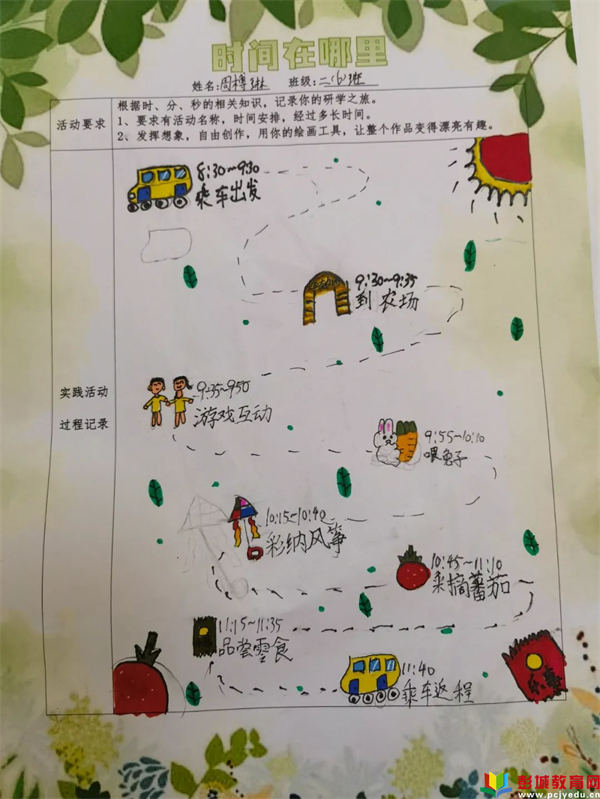 时间在哪里
姓名:周樽琳 班级:二(6)班
活动要求
根据时、分、秒的相关知识，记录你的研学之旅。
1、要求有活动名称，时间安排，经过多长时间。
2、发挥想象，自由创作，用你的绘画工具，让整个作品变得漂亮有趣。
实践活动
过程记录
8:30~9:30
乘车出发
9:30~9:35
到农场
9:35~950
游戏互动
9:55~10:10
喂兔子
10:15~10:40
彩纳风筝
10:45~11:10
采摘蕃茄
11:15~11:35
品尝零食
11:40
乘车返程
彭城教育网
www.pcjyedu.cn